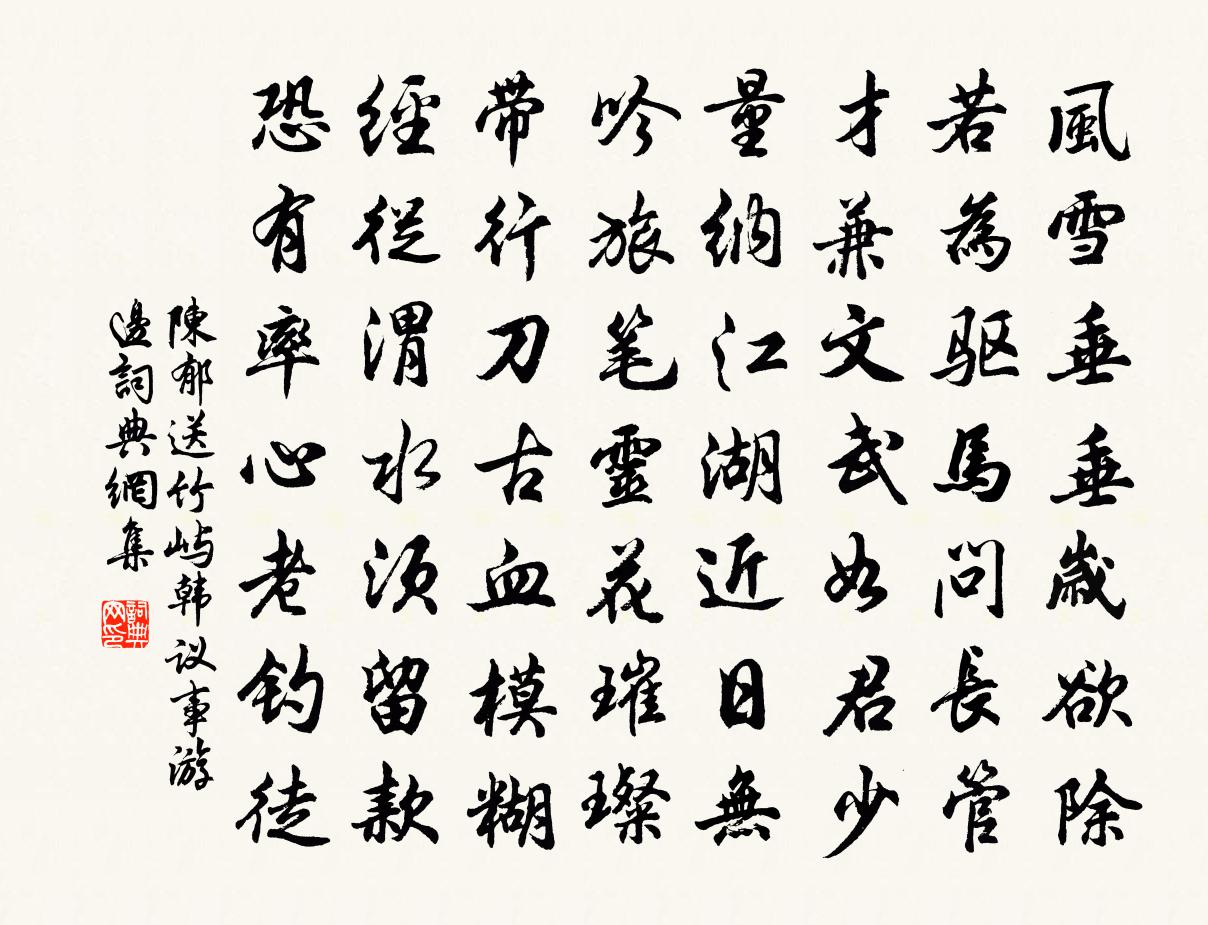 風雪垂垂歲欲除
若為驱馬問長管
才兼文武如君少
量纳江湖近日無
吟旅笔靈花璀璨
带行刀古血模糊
經從渭水须留款
恐有率心老钓徒
陳郁送竹屿韩议事游
邊詞典網集
詞典网印